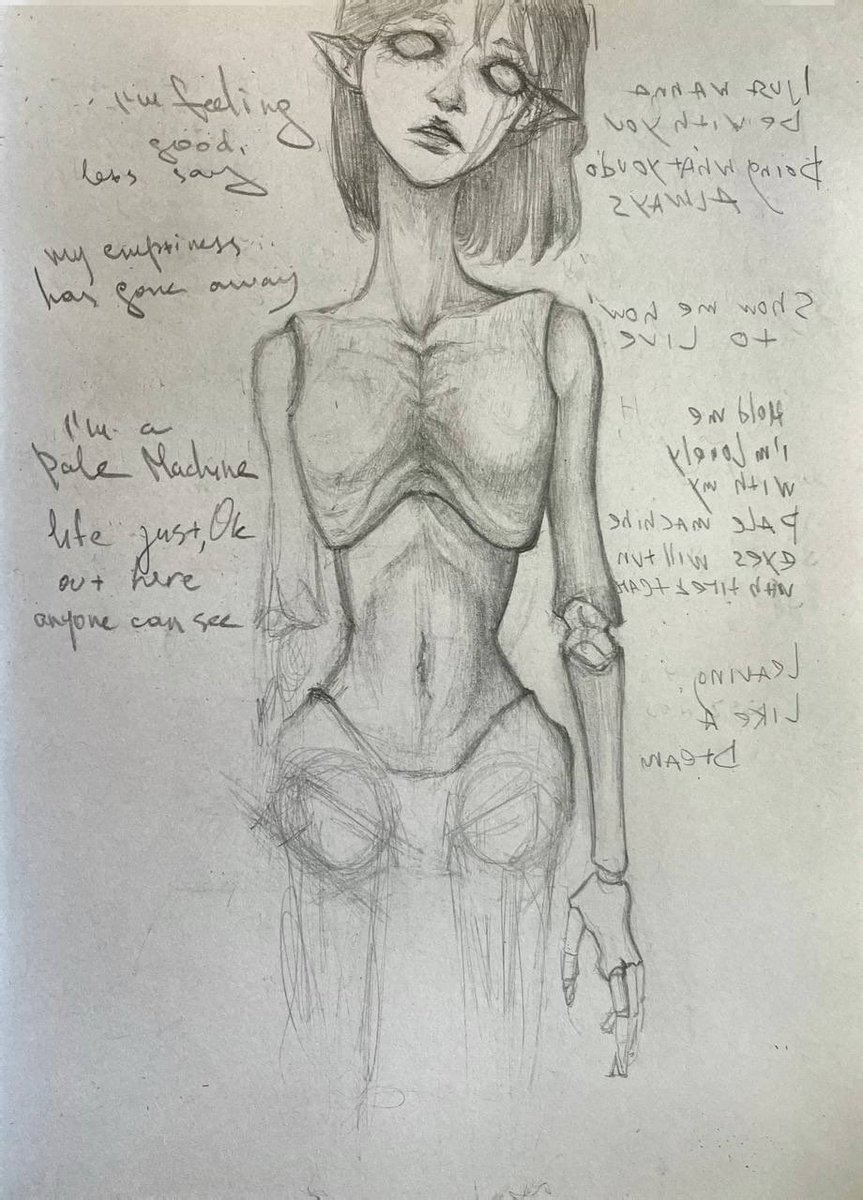 I'm feeling
good,
less say
my emptiness
has gone away
I'm a
Pale Machine
life just, Ok
out here
anyone can see
I just wanna
be with you
Doing what you do
ALWAYS
Show me how
to LIVE
Hold me
I'm Lonely
with my
pale machine
eyes will run
with
Leaving
LIKE A
Dream